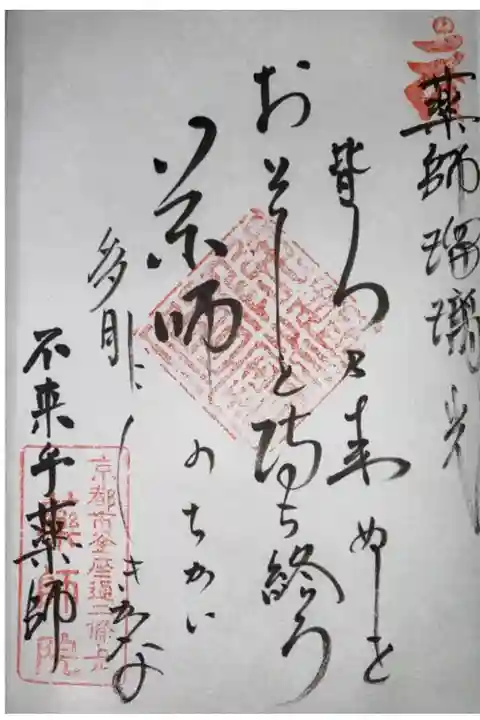 薬師瑠璃光
皆 来ぬ と
おそしと待ち給う
薬師のちかい
多 しきかな
不来乎薬師
京都市釜座通二條上
薬師院